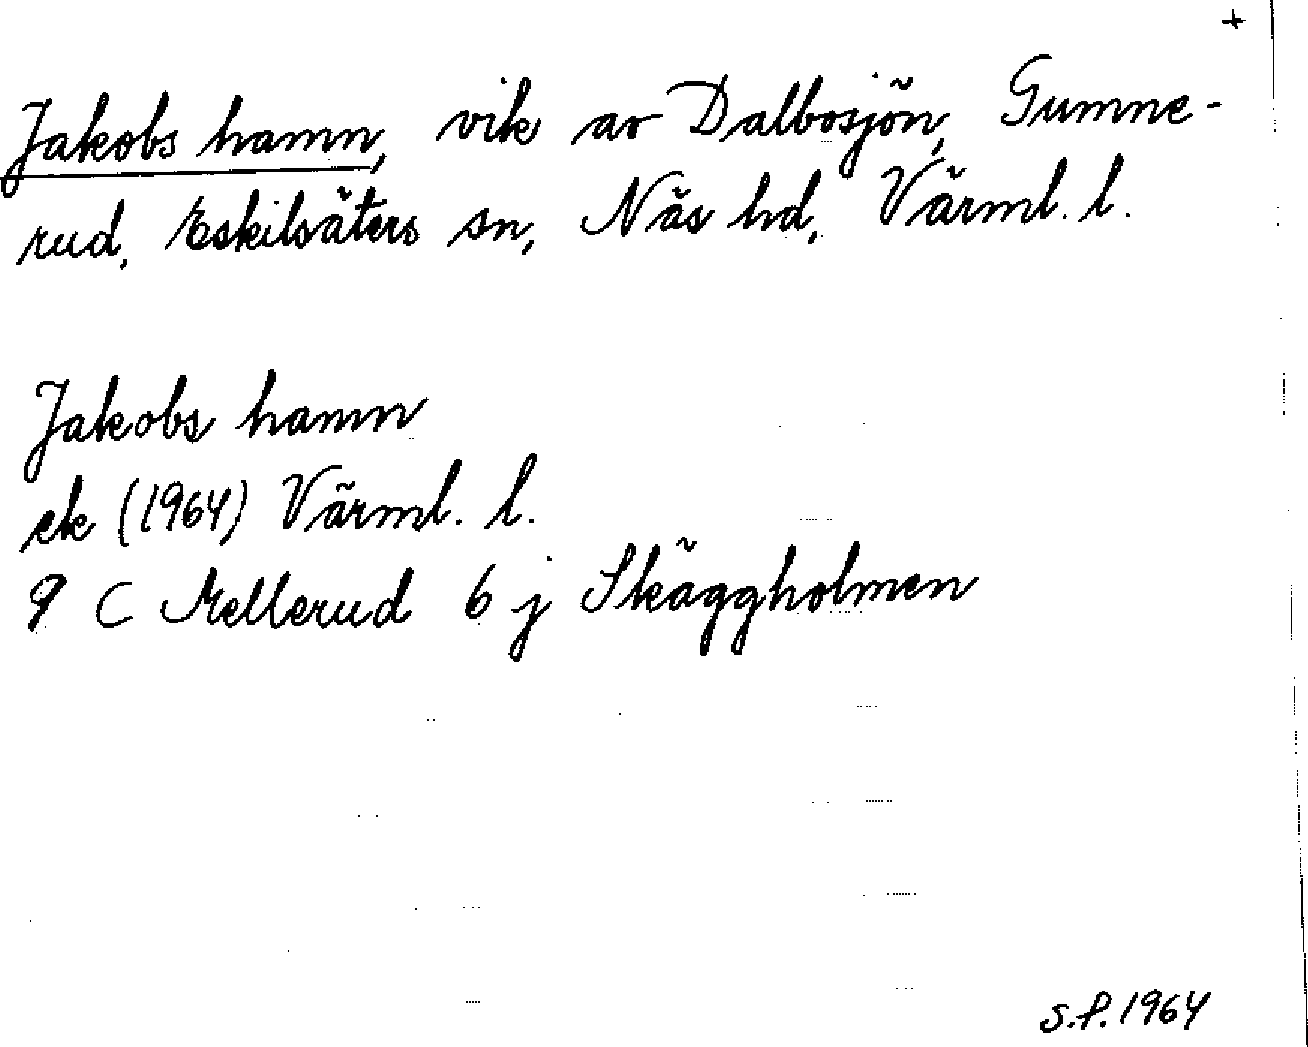 +
Jakobs hamn, vik av Dalbosjön, Gumne-
rud, Eskilsäters sn, Näs hd, Värml. l.
Jakobs hamn
ek (1964) Värml. l.
9 C Mellerud 6 j Skäggholmen
S.P. 1964